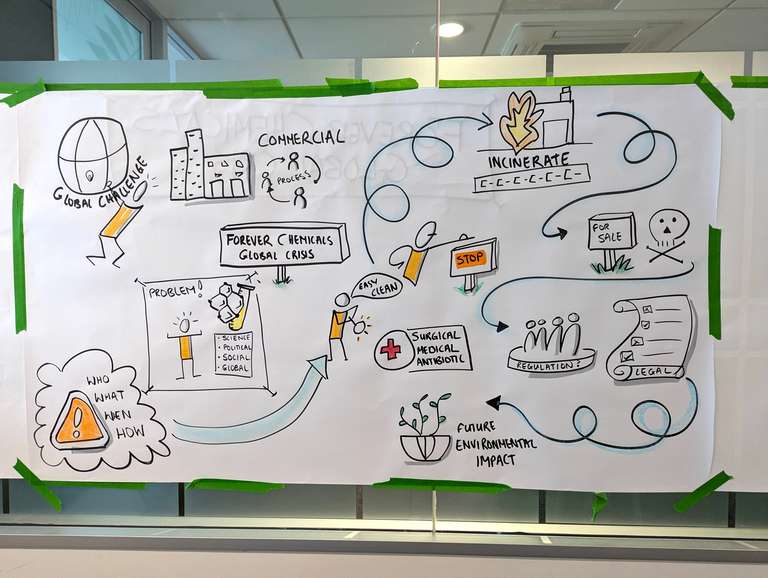 GLOBAL CHALLENGE
COMMERCIAL
PROCESS
INCINERATE
C-C-C-C-C-C-
FOREVER CHEMICALS
GLOBAL CRISIS
FOR
SALE
STOP
EASY
CLEAN
PROBLEM!
• SCIENCE
• POLITICAL
• SOCIAL
• GLOBAL
SURGICAL
MEDICAL
ANTIBIOTIC
REGULATION?
LEGAL
WHO
WHAT
WEN
HOW
!
FUTURE
ENVIRONMENTAL
IMPACT